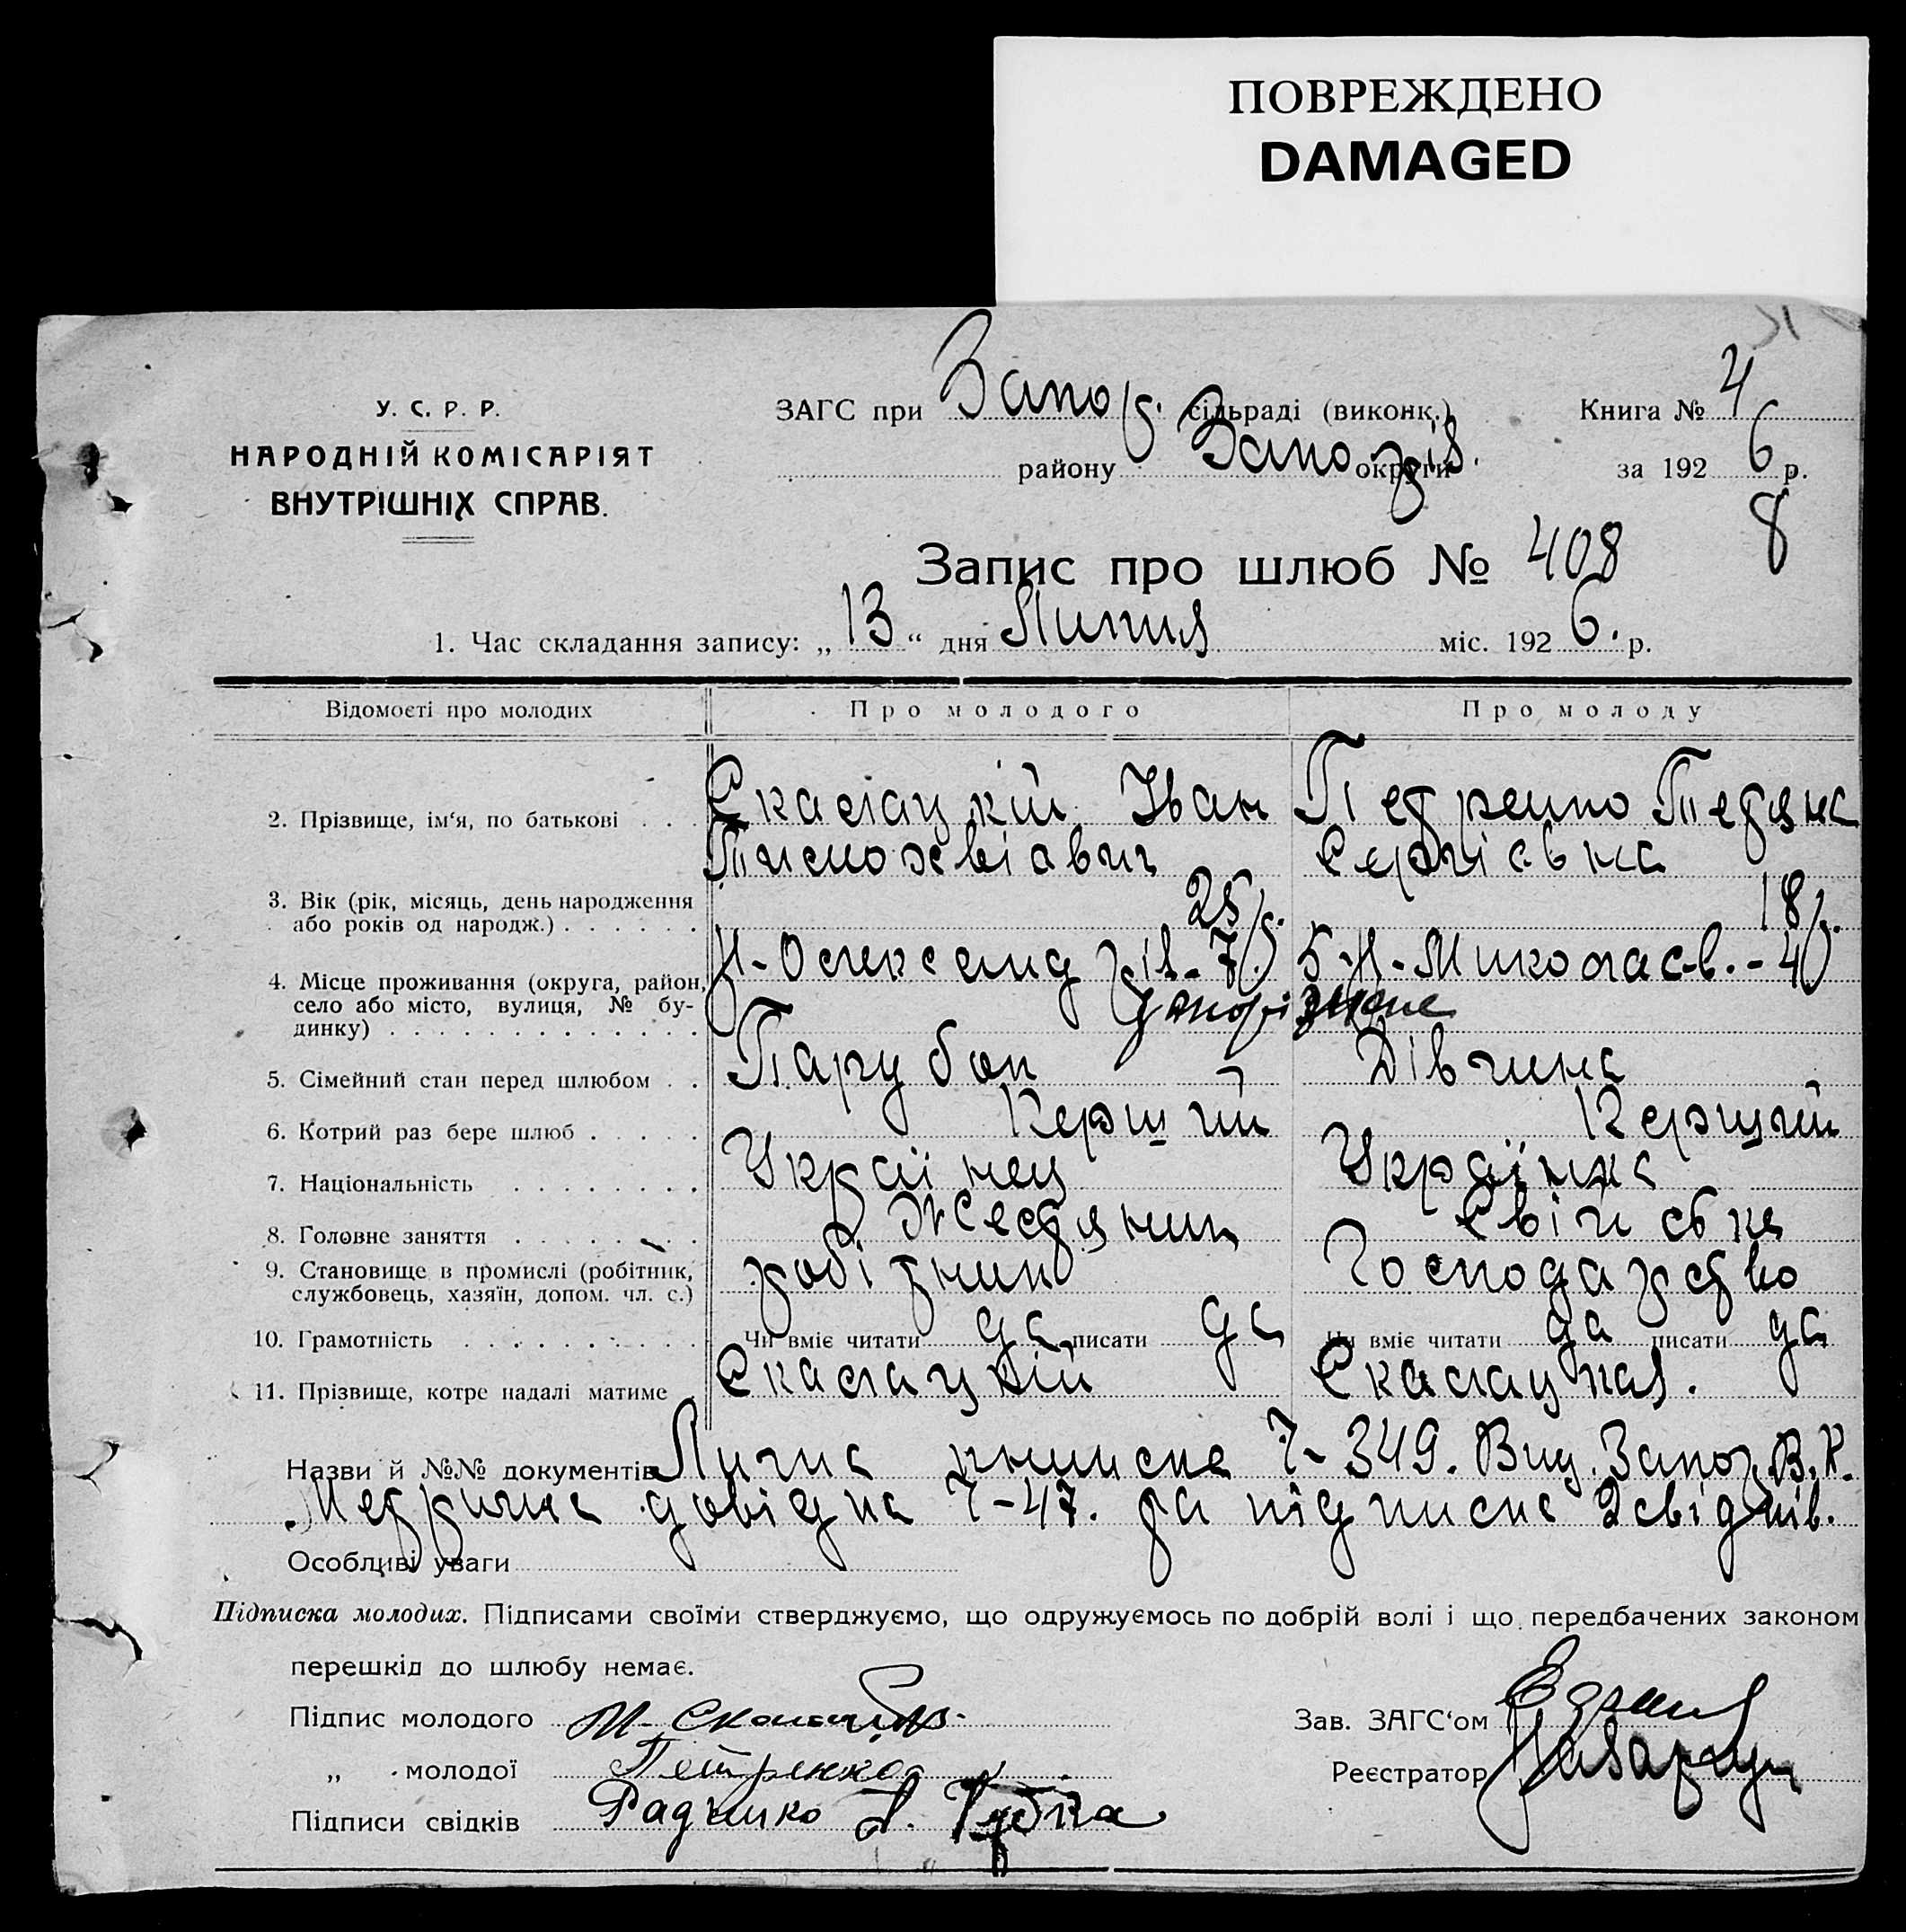 ПОВРЕЖДЕНО
DAMAGED
У. С. Р. Р.
НАРОДНІЙ КОМІСАРІЯТ
ВНУТРІШНІХ СПРАВ.
ЗАГС при Запор. сільраді (виконк.)
району Запорів. округи
Книга № 4
за 1926 р.
8
Запис про шлюб № 408
1. Час складання запису: „13“ дня Липня міс. 1926. р.
Відомості про молодих Про молодого Про молоду
2. Прізвище, ім‘я, по батькові . . . Скалацкій Іван Петренко Тетяна
Тимохвіавич Сергіевна
3. Вік (рік, місяць, день народження
або років од народж.) . . . . . . 25р. 18р.
4. Місце проживання (округа, район,
село або місто, вулиця, № бу-
динку) . . . . . . . . . . . . . Н-Олександрів-7 Б-Н-Миколаев.-4
Запоріжжє
5. Сімейний стан перед шлюбом . . Парубок Дівчина
6. Котрий раз бере шлюб . . . . . Перший Перший
7. Національність . . . . . . . . Украйнец Украінка
8. Головне заняття . . . . . . . . Жестяник Свійська
9. Становище в промислі (робітник,
службовець, хазяїн, допом. чл. с.) робітник Господарство
10. Грамотність . . . . . . . . . . Чи вміє читати да писати да Чи вміє читати да писати да
11. Прізвище, котре надалі матиме . Скалацкій Скалацкая.
Назви й №№ документів Лична книжка Ч-349. Вид. Запор. В.К.
Метрична довідка Ч-47. та підписка 2 свідків.
Особливі уваги
Підписка молодих. Підписами своїми стверджуємо, що одружуємось по добрій волі і що передбачених законом
перешкід до шлюбу немає.
Підпис молодого
„ молодої Петренко
Підписи свідків Радченко
Зав. ЗАГС‘ом
Реєстратор